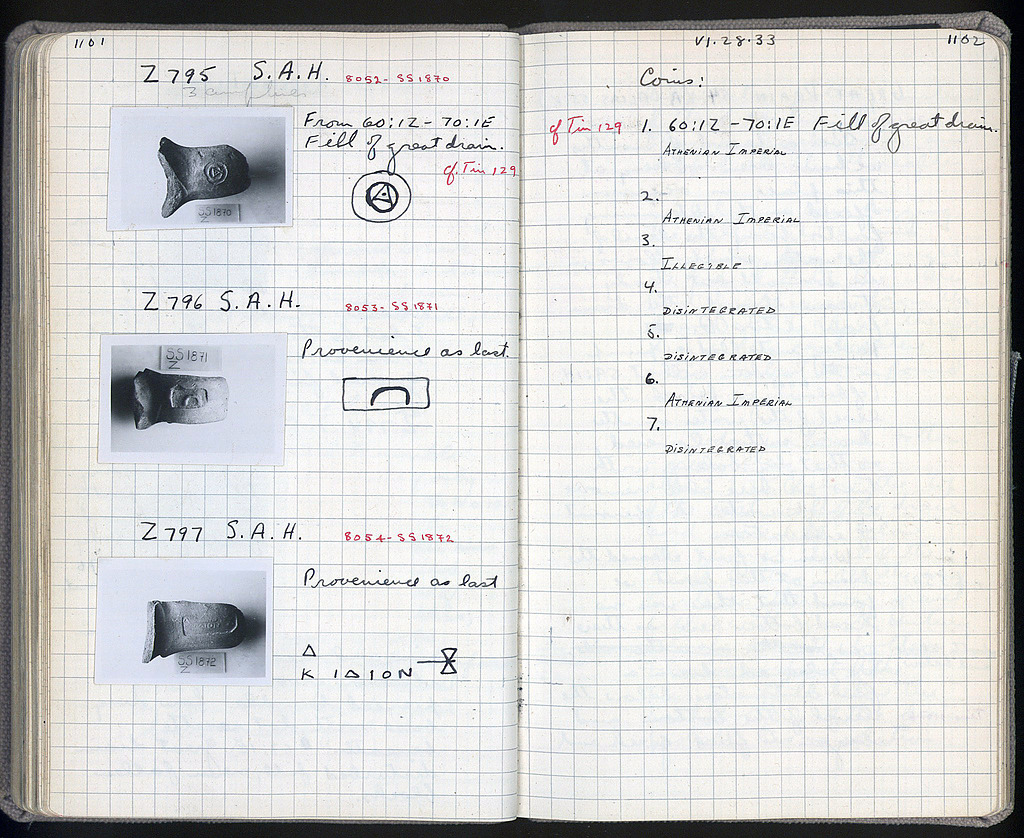 1101
Z 795 S.A.H. 8052-SS1870
3 amphoras
From 60:IZ - 70:IE
Fill of great drain.
cf. Tin 129
A
SS1870
Z
Z 796 S.A.H. 8053-SS1871
SS1871
Z
Provenience as last.
Z 797 S.A.H. 8054-SS1872
Provenience as last
SS1872
Z
Δ
ΚΙΔΙΟΝ
VI.28.33
1102
Coins:
cf Tin 129 1. 60:IZ - 70:IE Fill of great drain.
ATHENIAN IMPERIAL
2.
ATHENIAN IMPERIAL
3.
ILLEGIBLE
4.
DISINTEGRATED
5.
DISINTEGRATED
6.
ATHENIAN IMPERIAL
7.
DISINTEGRATED